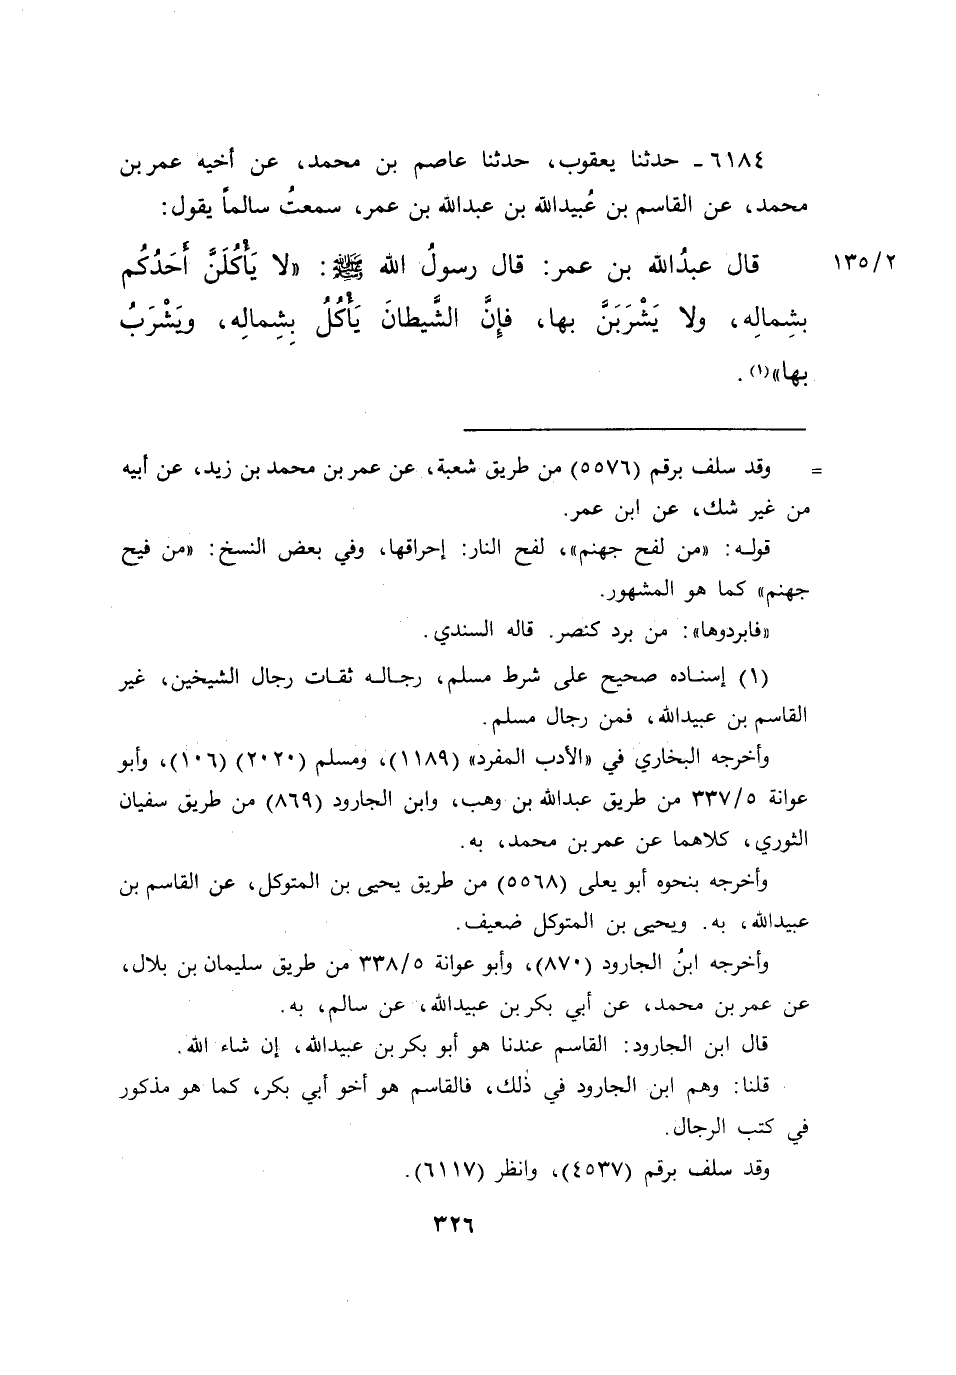 ٦١٨٤ـ حدثنا يعقوب، حدثنا عاصم بن محمد، عن أخيه عمر بن
محمد، عن القاسم بن عُبيدالله بن عبدالله بن عمر، سمعتُ سالماً يقول:
١٣٥/٢ قال عبدُالله بن عمر: قال رسولُ الله ﷺ: «لا يَأْكُلَنَّ أَحَدُكُم
بشِمالِه، ولا يَشْرَبَنَّ بها، فإِنَّ الشَّيطانَ يَأْكُلُ بِشِمالِه، ويَشْرَبُ
بها»(١).
= وقد سلف برقم (٥٥٧٦) من طريق شعبة، عن عمر بن محمد بن زيد، عن أبيه
من غير شك، عن ابن عمر.
قوله: «من لفح جهنم»، لفح النار: إحراقها، وفي بعض النسخ: «من فيح
جهنم» كما هو المشهور.
«فابردوها»: من برد كنصر. قاله السندي.
(١) إسناده صحيح على شرط مسلم، رجاله ثقات رجال الشيخين، غير
القاسم بن عبيدالله، فمن رجال مسلم.
وأخرجه البخاري في «الأدب المفرد» (١١٨٩)، ومسلم (٢٠٢٠) (١٠٦)، وأبو
عوانة ٣٣٧/٥ من طريق عبدالله بن وهب، وابن الجارود (٨٦٩) من طريق سفيان
الثوري، كلاهما عن عمر بن محمد، به.
وأخرجه بنحوه أبو يعلى (٥٥٦٨) من طريق يحيى بن المتوكل، عن القاسم بن
عبيدالله، به. ويحيى بن المتوكل ضعيف.
وأخرجه ابنُ الجارود (٨٧٠)، وأبو عوانة ٣٣٨/٥ من طريق سليمان بن بلال،
عن عمر بن محمد، عن أبي بكر بن عبيدالله، عن سالم، به.
قال ابن الجارود: القاسم عندنا هو أبو بكر بن عبيدالله، إن شاء الله.
قلنا: وهم ابن الجارود في ذلك، فالقاسم هو أخو أبي بكر، كما هو مذكور
في كتب الرجال.
وقد سلف برقم (٤٥٣٧)، وانظر (٦١١٧).
٣٢٦